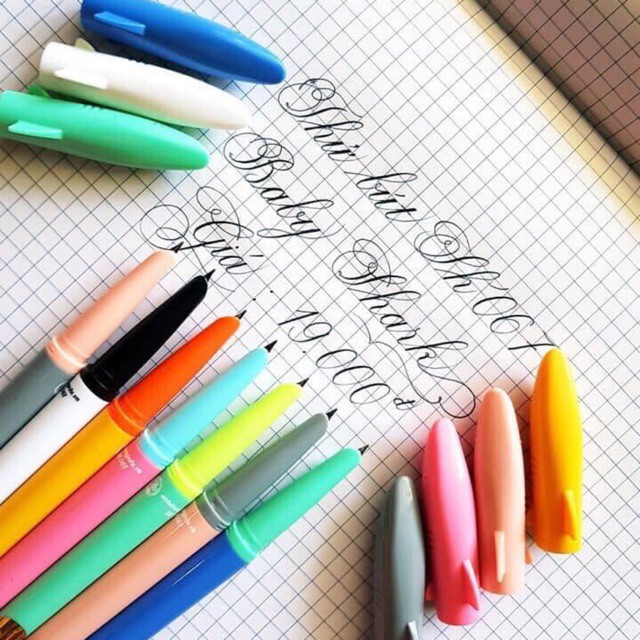 Thử bút SH 061
Baby Shark
Giá : 19.000 đ